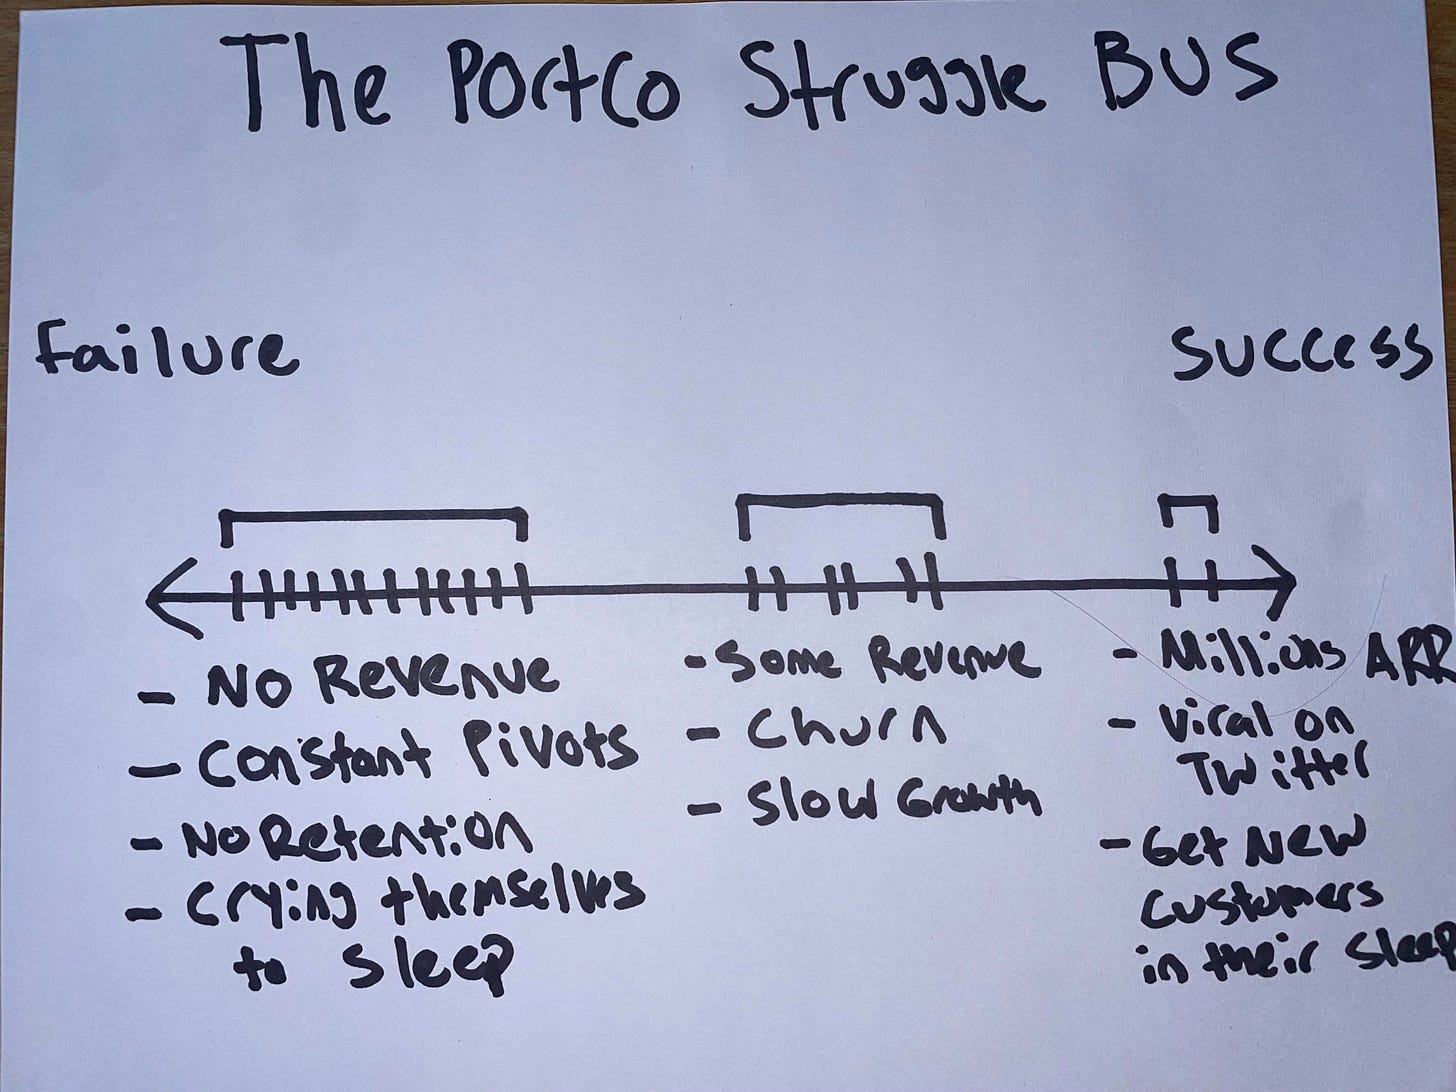 The PortCo Struggle BUS
Failure
Success
- No Revenue
- Constant Pivots
- No Retention
- Crying themselves
to sleep
- Some Revenue
- Churn
- Slow Growth
- Millions ARR
- Viral on
Twitter
- Get New
Customers
in their sleep